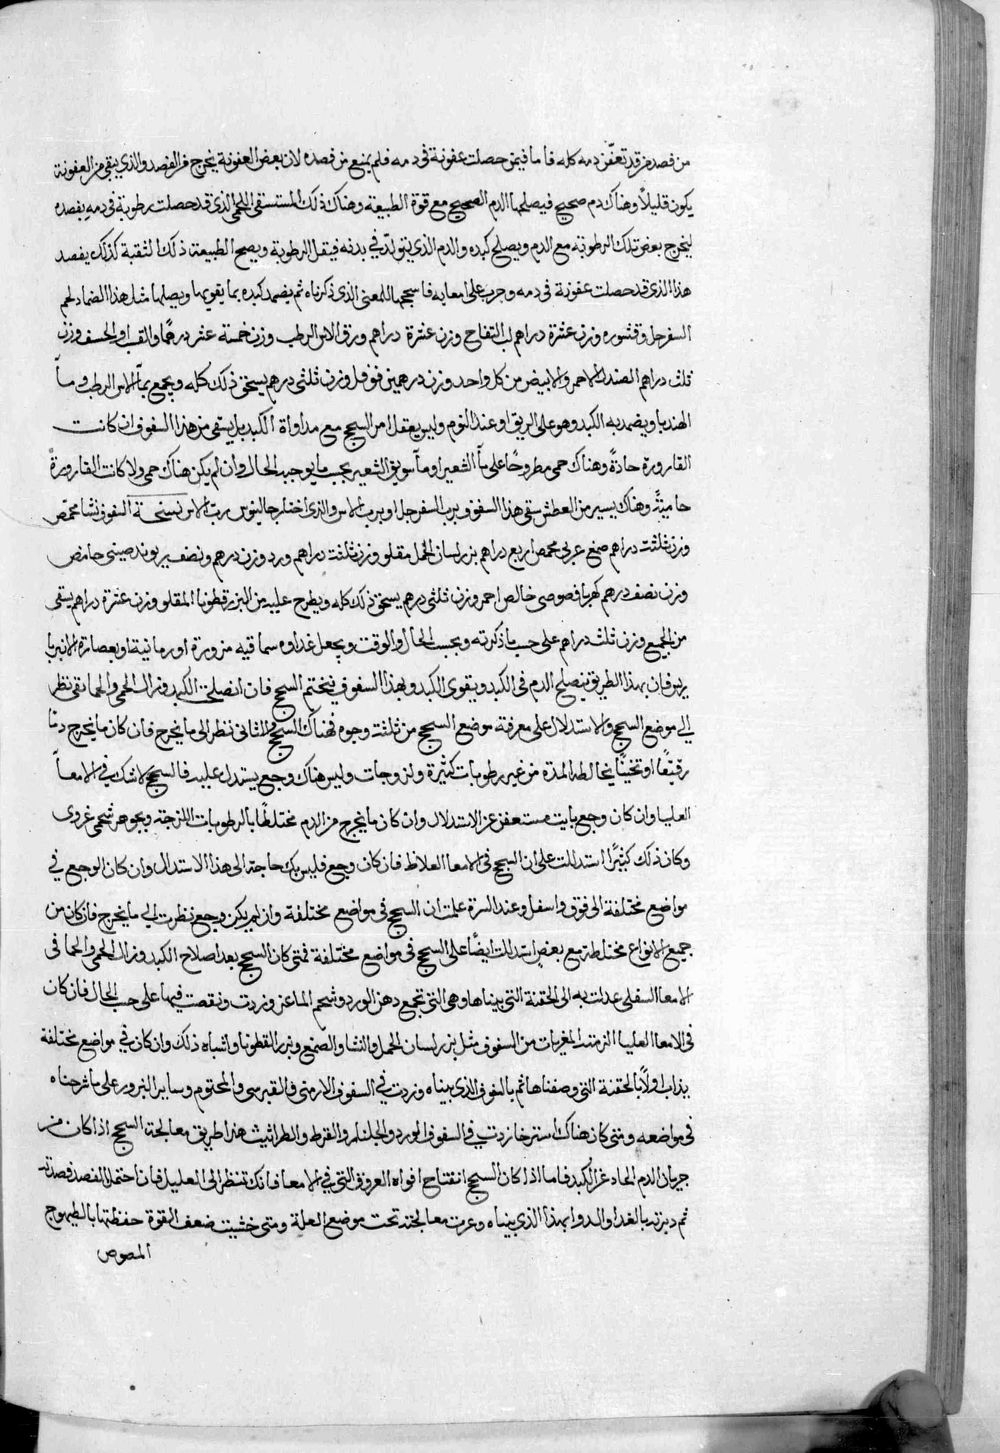 من فصد من قد تعفّن دمه كله فاما فيمن حصلت عفونة في دمه فلم يمنع من فصده لان بعض العفونة يخرج في الفصد والذي يبقى من العفونة
يكون قليلاً وهناك دم صحيح فيصلحها الدم الصحيح مع قوة الطبيعة وهناك ذلك المستسقى اللحمي الذي قد حصلت رطوبة في دمه يفصد
ليخرج بعض تلك الرطوبة مع الدم ويصلح كبده والدم الذي يتولد في بدنه فيقل الرطوبة ويصح الطبيعة ذلك البقية كذلك يفصد
هذا الذي قد حصلت عفونة في دمه وجرب على امعايه فاسحجها للمعنى الذي ذكرناه ثم يضمد كبده بما يقويها ويصلها مثل هذا الضماد لحم
السفرجل وقشوره وزن عشرة دراهم لب التفاح وزن عشرة دراهم ورق الاس الرطب وزن خمسة عشر درهمًا والقب او الخسف وزن
ثلث دراهم الصندل الاحمر والابيض من كل واحد وزن درهمين فوفل وزن ثلثى درهم يسحق ذلك كله ويجمع بمآ الاس الرطب ومآ
الهندبا ويضمد به الكبد وهو على الريق او عند النوم وليس يغفل امر السحج مع مداواة الكبد بل يسقى من هذا السفوف ان كانت
القارورة حادةً وهناك حمى مطروحًا على مآ الشعير او مآ سويق الشعير بحسب ما يوجبه الحال وان لم يكن هناك حمى ولا كانت القارورةُ
حاميّةً وهناك يسير من العطش سقى هذا السفوف برب السفرجل او برب الاس والذي اختار جالينوس رب الاس نسخة السفوف نشا محمّص
وزن ثلثة دراهم صمغ عربي محمص اربع دراهم بزر لسان الحمل مقلو وزن ثلثة دراهم ورد وزن درهم ونصف ريوند صيني حامض
وزن نصف درهم كهربا فصوصي خالص احمر وزن ثلثى درهم يسحق ذلك كله ويطرح عليه من البزر قطونا المقلو وزن عشرة دراهم يسقى
من الجميع وزن ثلث دراهم على حسب ما ذكرته وبحسب الحال والوقت ويجعل غداوه سماقية مزورة او رمانية او بعصارة الانبربا
ريس فان بهذا الطريق ينصلح الدم في الكبد ويقوى الكبد وبهذا السفوف فيختم السحج فان انصلحت الكبد وزال الحمى والحما دقى نظر
الى موضع السحج والاستدلال على معرفة موضع السحج من ثلثة وجوه فهناك السحج والثاني تنظر الى ما يخرج فان كان ما يخرج دمًا
رقيقًا او ثخينًا يخالطه المدة من غير رطوبات كثيرة ولزوجات وليس هناك وجع يستدل عليه فالسحج لا شك في الامعآ
العليا وان كان وجع بابت مستعفن عن الاستدلال وان كان ما يخرج من الدم مختلطًا بالرطوبات اللزجة وبجوهر شحمي غروى
وكان ذلك كثيرًا استدللت على ان السحج في الامعا الغلاظ فان كان وجع فليس بك حاجة الى هذا الاستدلال وان كان الوجع في
مواضع مختلفة الى فوق واسفل وعند السرة علمت ان السحج في مواضع مختلفة وان لم يكن وجع نظرت الى ما يخرج فان كان من
جميع الانواع مختلطة مع بعض استدللت ايضًا على السحج في مواضع مختلفة فمتى كان السحج بعد اصلاح الكبد وزال الحمى والحما في
الامعا السفلى عدلت به الى الحقنة التي بيناها وهى التي تجمع دهن الورد وشحم الماعز وزدت ونقصت فيها على حسب الحال فان كان
في الامعا العليا الزمته المغريات من السفوف مثل بزر لسان الحمل والنشا والصمغ وبزر القطونا واشباه ذلك وان كان في مواضع مختلفة
بداب اولاً بالحقنة التي وصفناها ثم بالسفوف الذي بيناه وزدت في السفوف الارمني والقبرسي والمختوم وساير البزور على ما شرحناه
في مواضعه ومتى كان هناك استرخا زدت في السفوف الورد والجلنار والقرط والطراثيث هذا طريق معالجة السحج اذا كان من
جريان الدم الحاد عن الكبد فاما اذا كان السحج انفتاح افواه العروق التي في الامعا فانك تنظر الى العليل فان احتمل الفصد فصدته
ثم دبرته بالغدا والدوا بهذا الذي بيناه وعرف معالجته تحت موضع العلة ومتى خشيت ضعف القوة حفظتها بالطيهوج
المصوص